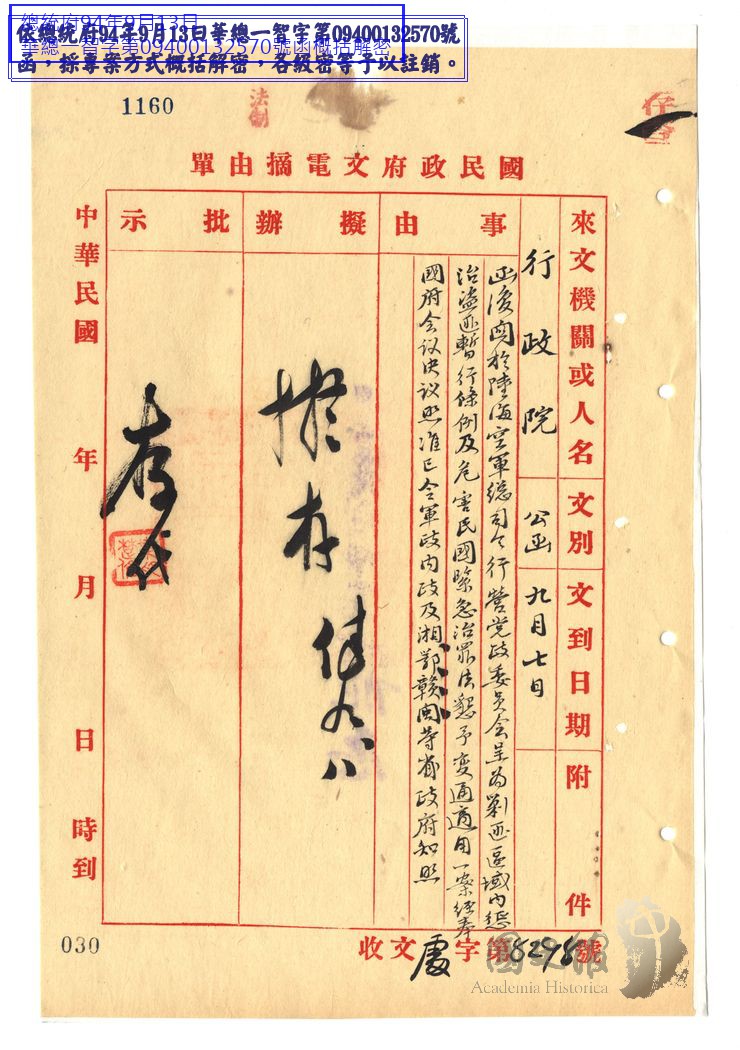 總統府94年9月13日
華總一智字第09400132570號函概括解密
依總統府94年9月13日華總一智字第09400132570號
函，採專案方式概括解密，各級密等予以註銷。
1160
法制
國民政府文電摘由單
來文機關或人名
行政院
文別
公函
文到日期
九月七日
附件
事由
函復關於陸海空軍總司令行營党政委員会呈為剿匪區域内懲
治盜匪暫行條例及危害民國緊急治罪法懇予變通適用一案經奉
國府会议决议照准已令軍政内政及湘鄂贛閩等省政府知照
擬辦
擬存
九、八
批示
存
中華民國 年 月 日 時到
收文處字第8298號
030
國史館
Academia Historica